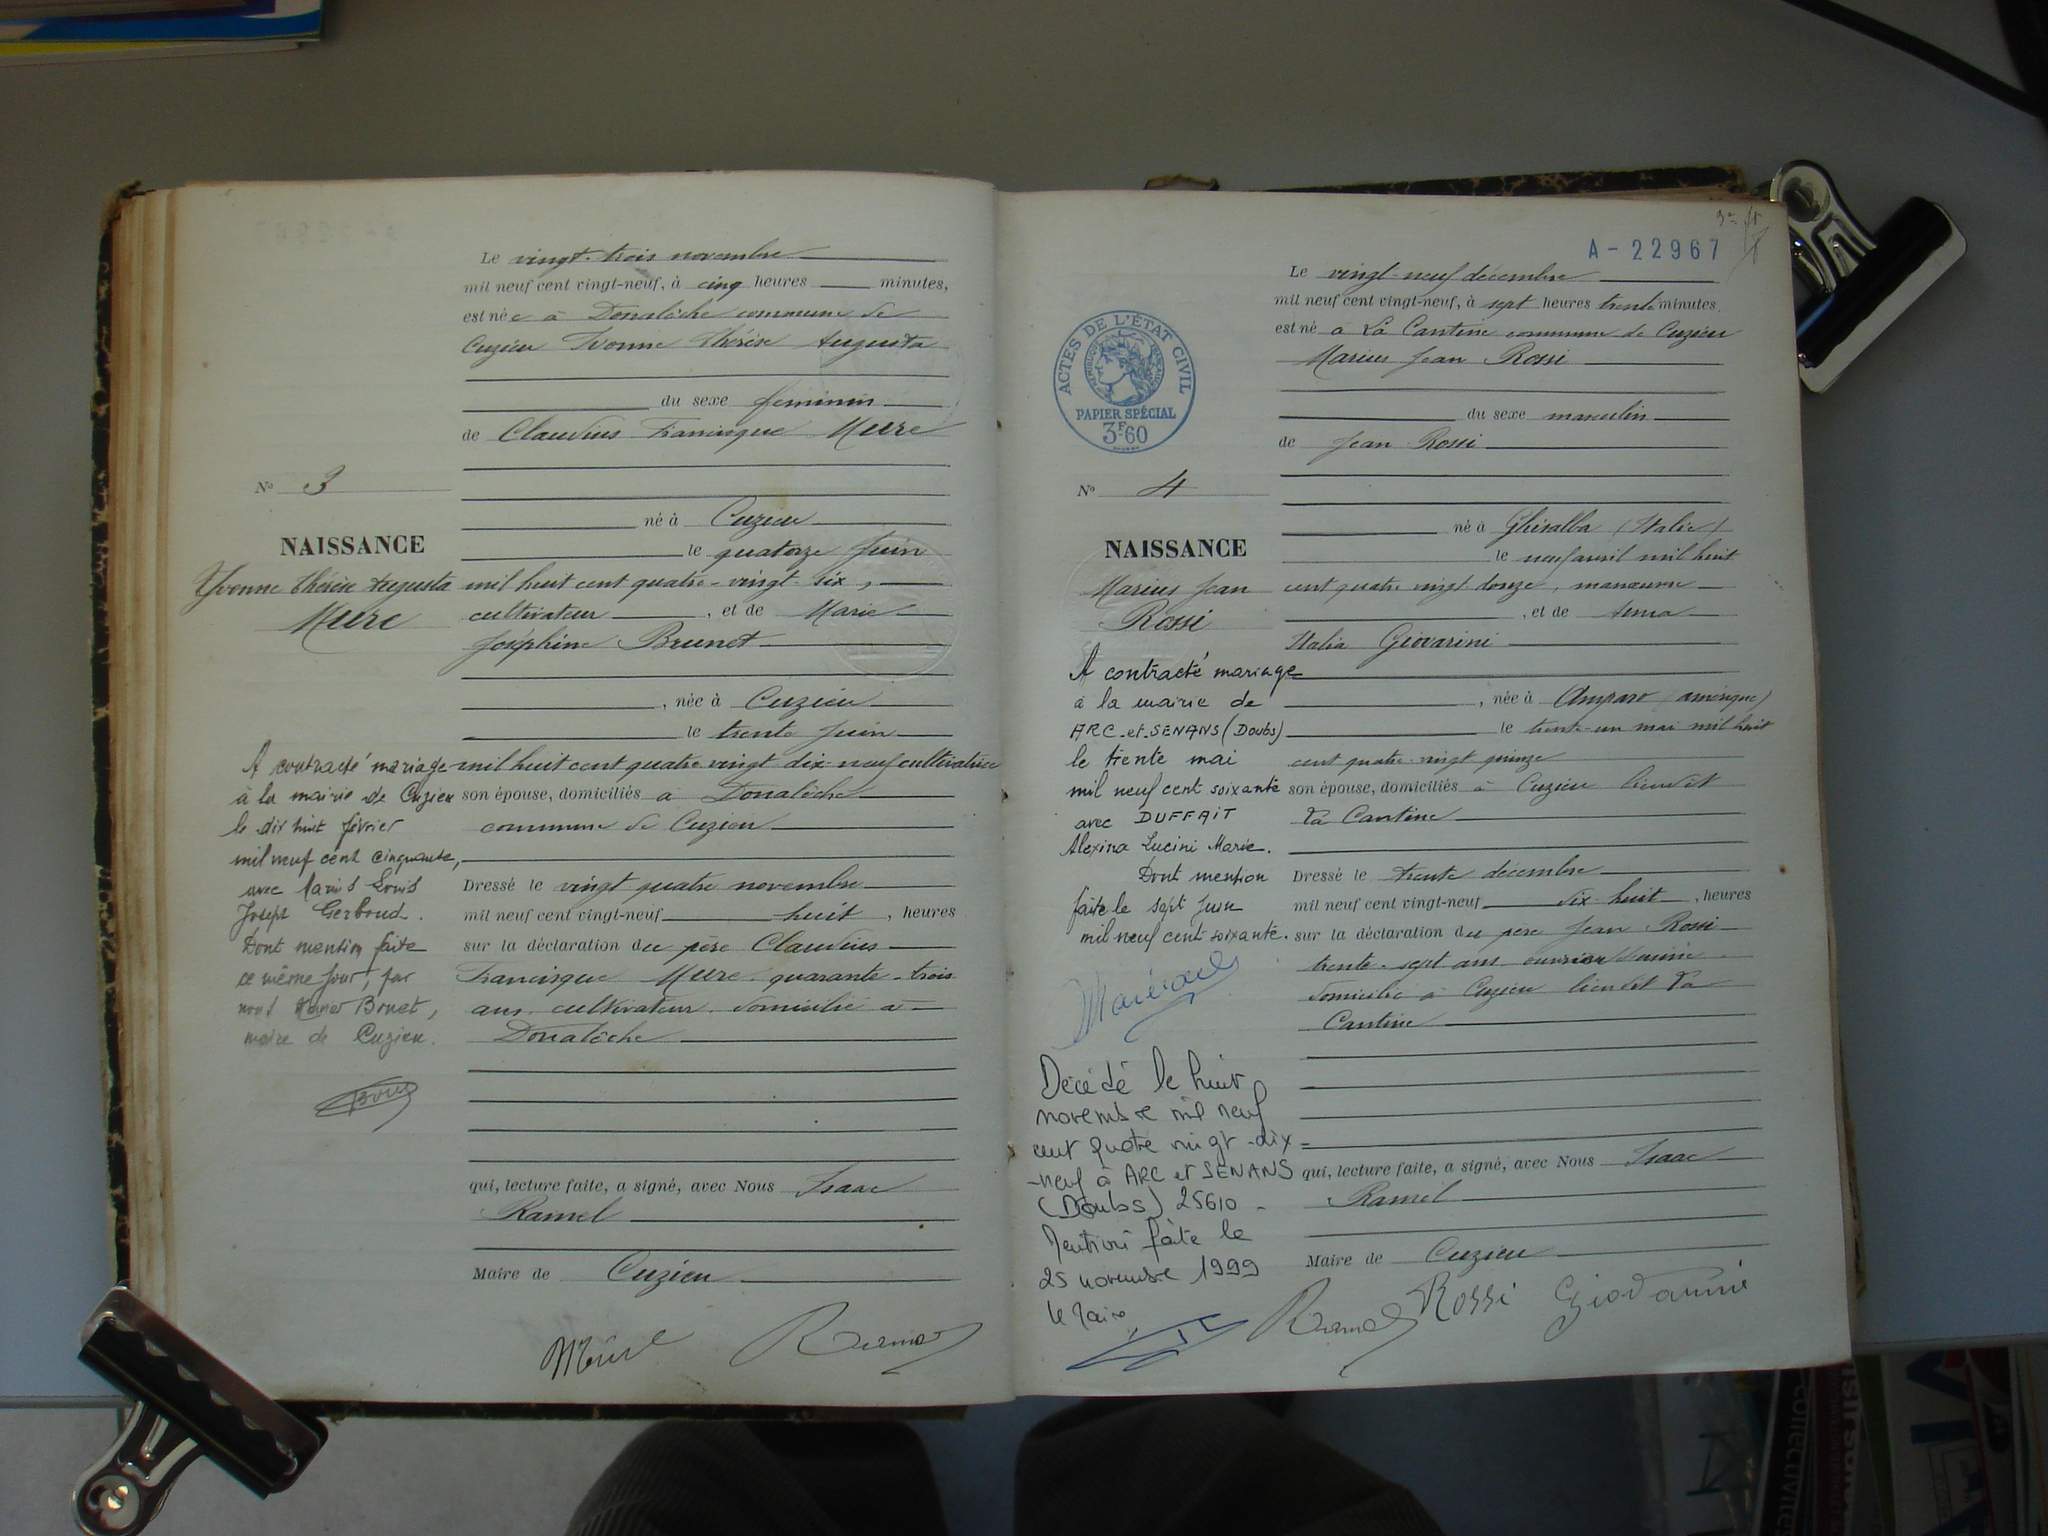 Le vingt-trois novembre
mil neuf cent vingt-neuf, à cinq heures minutes,
est née à Donalèche commune de
Cuzieu Yvonne Thérèse Augusta
du sexe feminin
de Claudius Francisque Mure
N° 3
né à Cuzieu
NAISSANCE
le quatorze Juin
Yvonne Thérèse Augusta
Mure
mil huit cent quatre-vingt six,
cultivateur, et de Marie
Joséphine Brunet
, née à Cuzieu
le trente Juin
mil huit cent quatre vingt dix-neuf cultivatrice
son épouse, domiciliés à Donalèche
commune de Cuzieu
A contracté mariage
à la mairie de Cuzieu
le dix huit février
mil neuf cent cinquante,
avec Louis
Joseph Gerboud.
Dont mention faite
ce même jour, par
nous Bonet,
maire de Cuzieu.
Dressé le vingt quatre novembre
mil neuf cent vingt-neuf huit, heures
sur la déclaration du père Claudius
Francisque Mure quarante-trois
ans cultivateur domicilié à
Donalèche
qui, lecture faite, a signé, avec Nous Isaac
Ramel
Maire de Cuzieu
Mure Ramel
A-22967
Le vingt-neuf décembre
mil neuf cent vingt-neuf, à sept heures trente minutes,
est né à La Cantine commune de Cuzieu
Marius Jean Rossi
ACTES DE L'ÉTAT CIVIL
PAPIER SPÉCIAL
3F60
du sexe masculin
de Jean Rossi
N° 4
né à Ghisalba (Italie)
NAISSANCE
le neuf avril mil huit
Marius Jean
Rossi
cent quatre vingt douze, manœuvre
, et de Anna
Italia Giovarini
, née à Amparo (amérique)
le trente-un mai mil huit
cent quatre-vingt quinze
son épouse, domiciliés à Cuzieu lieudit
La Cantine
A contracté mariage
à la mairie de
ARC-et-SENANS (Doubs)
le trente mai
mil neuf cent soixante
avec DUFFAIT
Alexina Lucini Marie.
Dont mention
faite le sept Juin
mil neuf cent soixante.
Décédé le huit
novembre mil neuf
cent quatre vingt-dix-
-neuf à ARC et SENANS
(Doubs) 25610
Mention faite le
25 novembre 1999
le Maire
Dressé le trente décembre
mil neuf cent vingt-neuf dix-huit, heures
sur la déclaration du père Jean Rossi
trente-sept ans ouvrier
domicilié à Cuzieu lieudit La
Cantine
qui, lecture faite, a signé, avec Nous Isaac
Ramel
Maire de Cuzieu
Ramel Rossi Giovanni